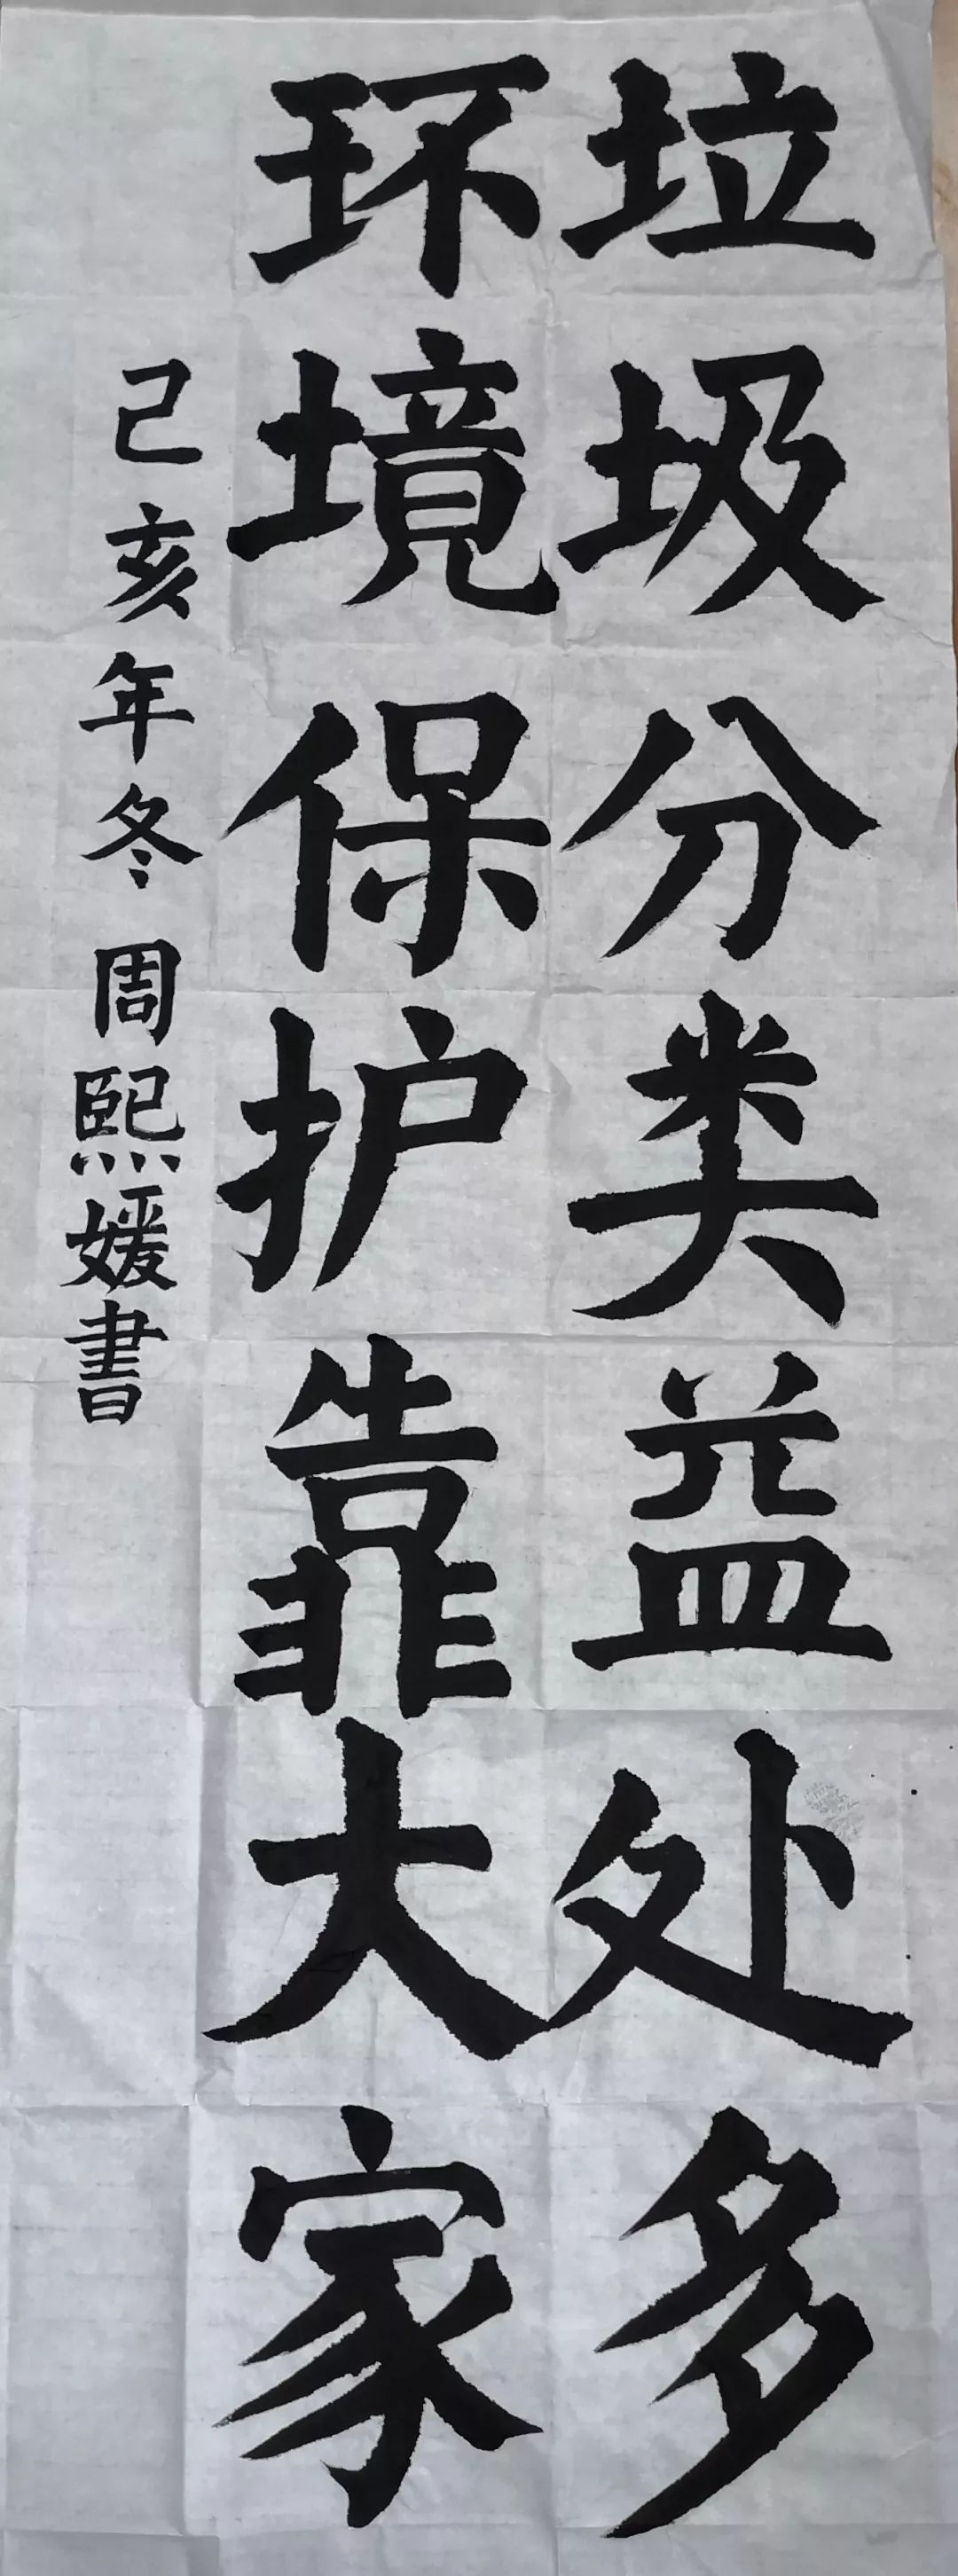 垃圾分类益处多
环境保护靠大家
己亥年冬周熙媛書